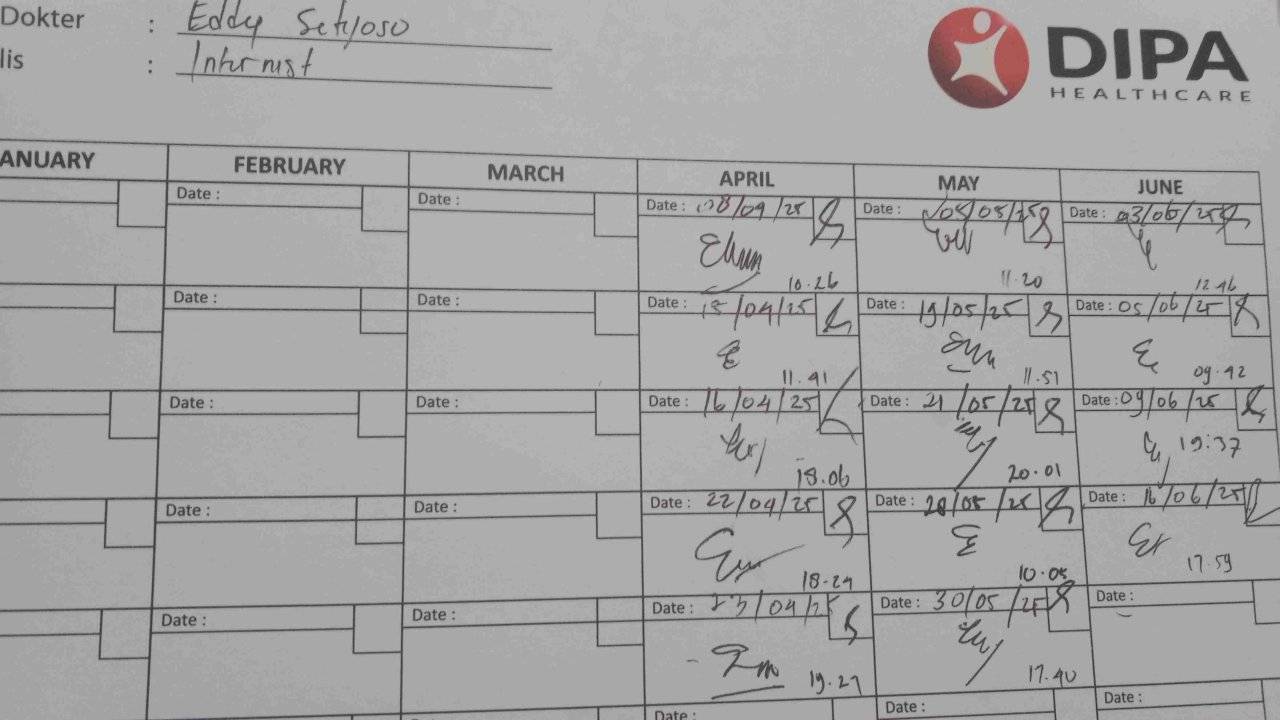 Dokter : Eddy Setioso
lis : Internist
DIPA
HEALTHCARE
ANUARY FEBRUARY MARCH APRIL MAY JUNE
Date : Date : Date : 08/04/25 Date : 05/05/25 Date : 03/06/25
10.26 11.20 12.46
Date : Date : Date : 15/04/25 Date : 19/05/25 Date : 05/06/25
11.41 11.51 09.42
Date : Date : Date : 16/04/25 Date : 21/05/25 Date : 09/06/25
18.06 20.01 19:37
Date : Date : Date : 22/04/25 Date : 28/05/25 Date : 16/06/25
18.29 10.05 17.59
Date : Date : Date : 23/04/25 Date : 30/05/25 Date :
19.27 17.40
Date : Date : Date :